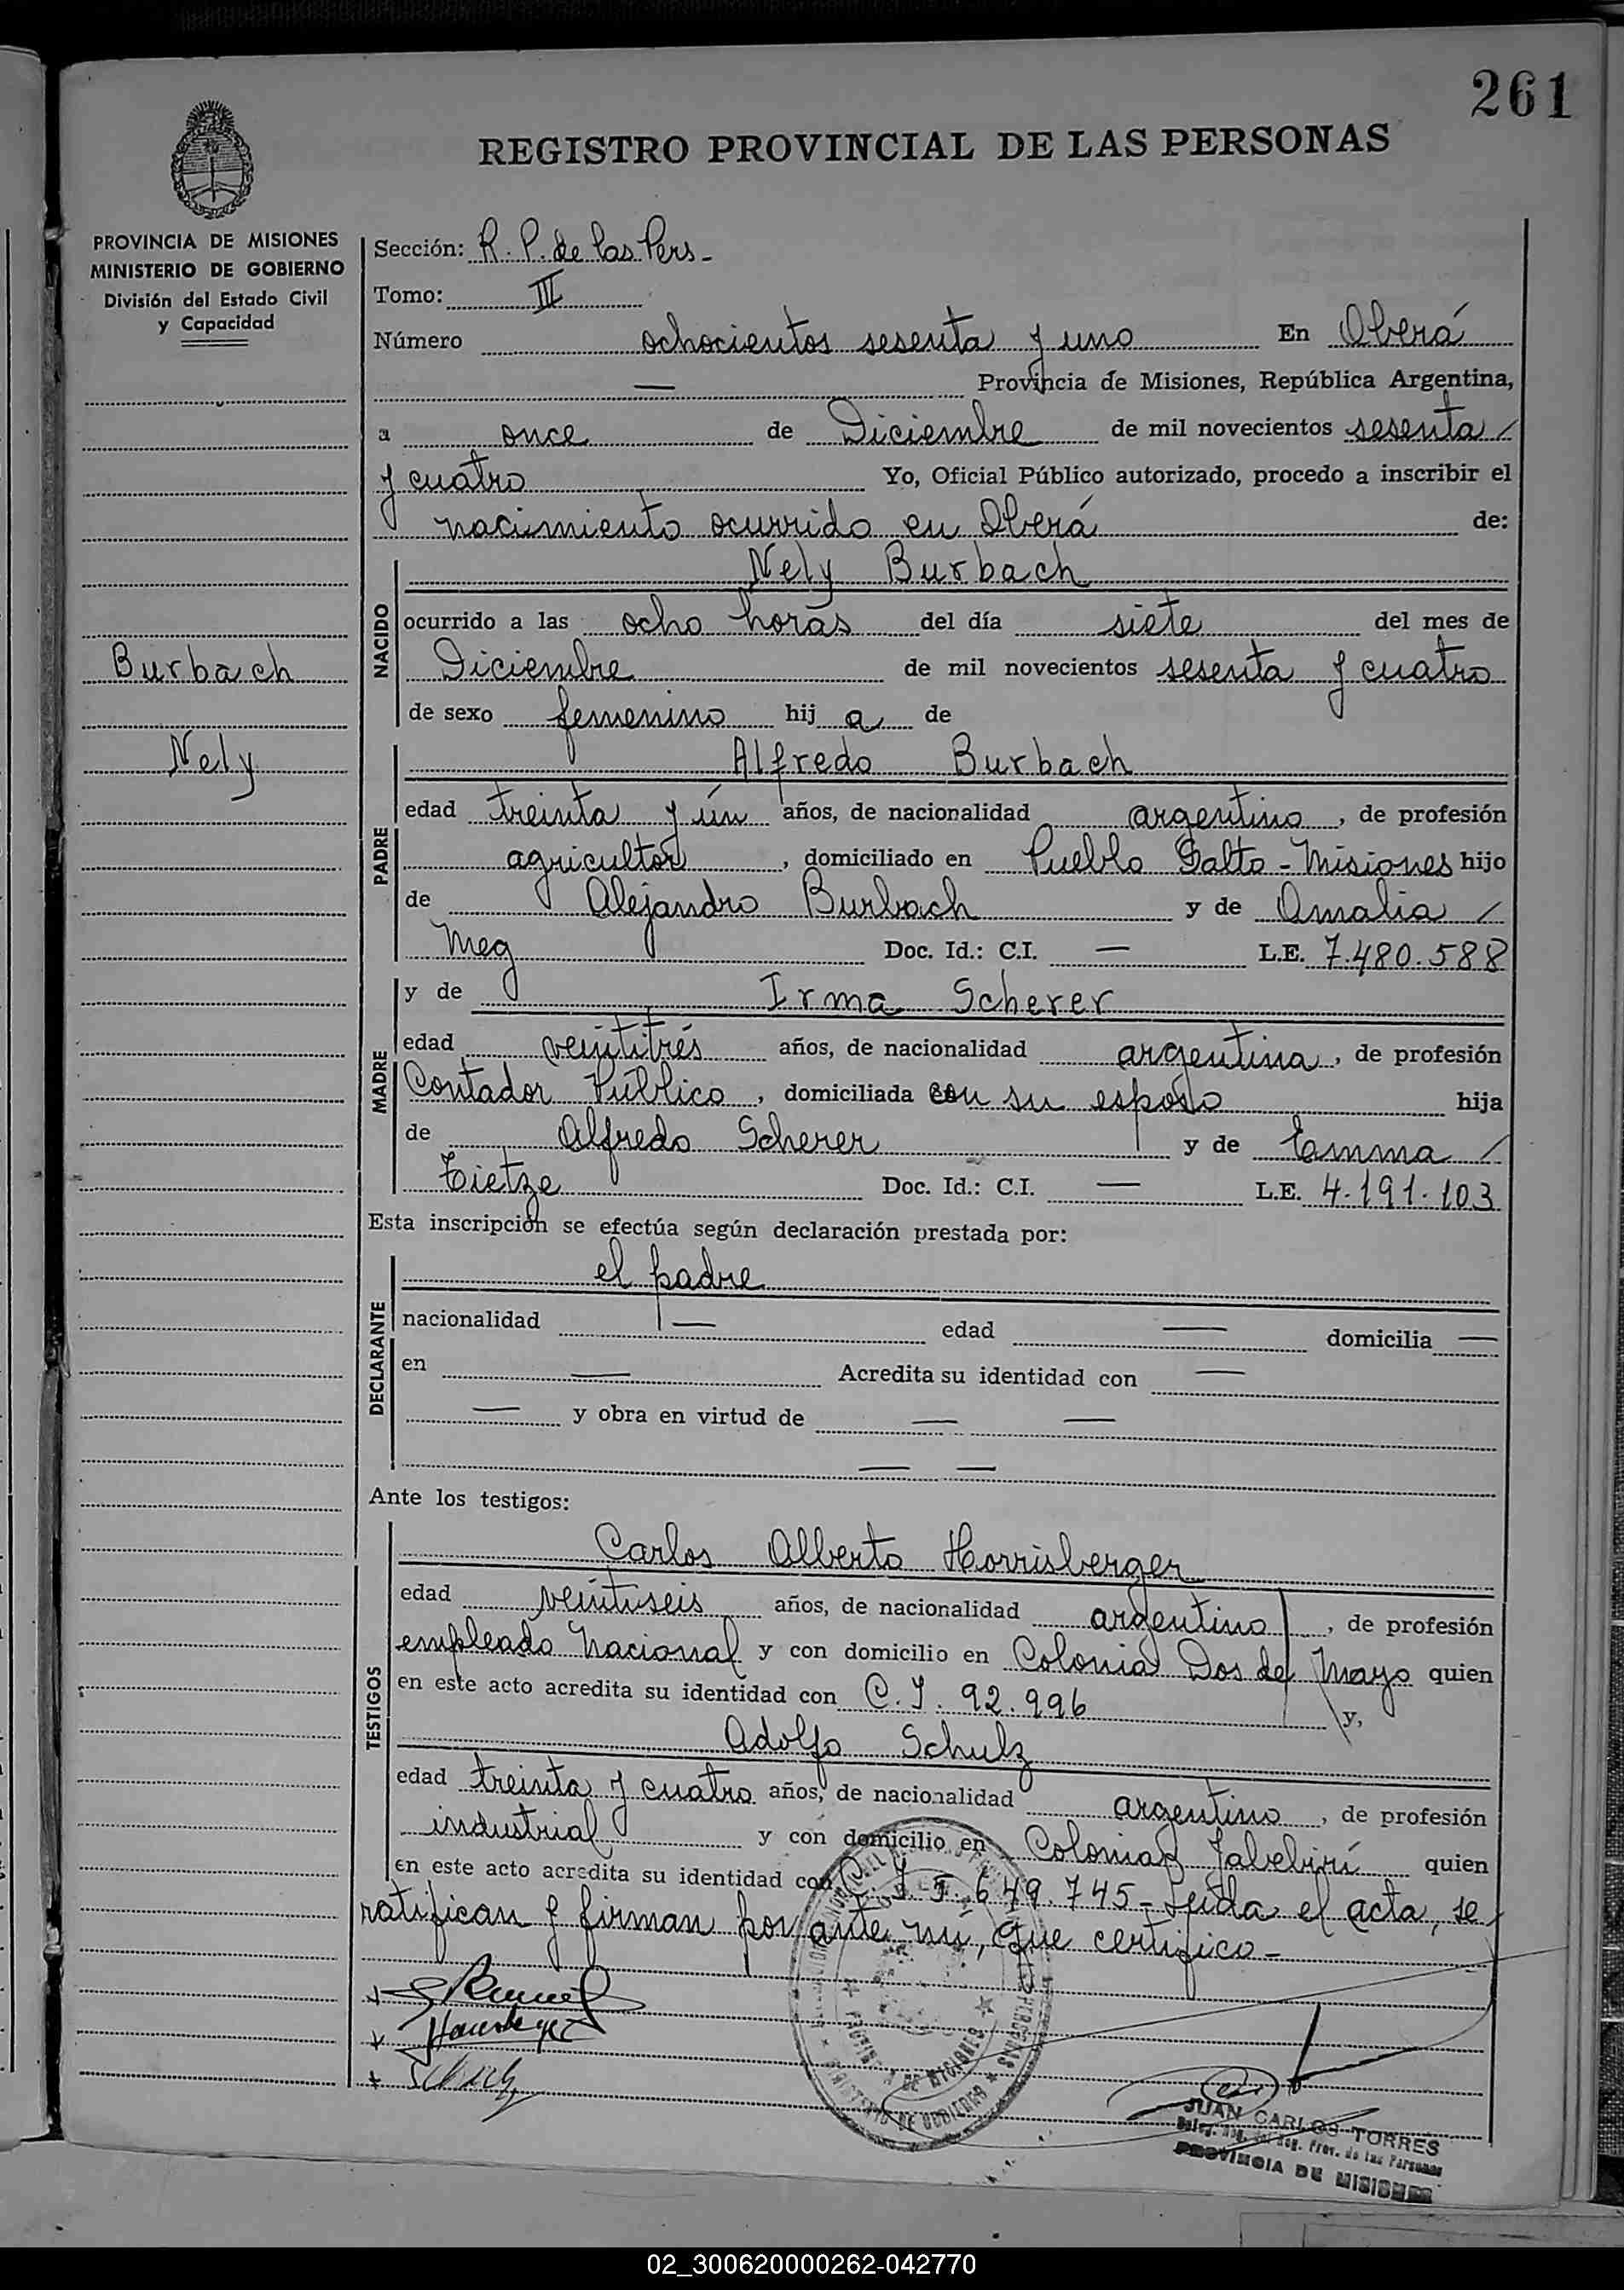 261
REGISTRO PROVINCIAL DE LAS PERSONAS
PROVINCIA DE MISIONES
MINISTERIO DE GOBIERNO
División del Estado Civil
y Capacidad
Burbach
Nely
Sección: R. P. de las Pers-
Tomo: III
Número ochocientos sesenta y uno En Oberá
— Provincia de Misiones, República Argentina,
a once de Diciembre de mil novecientos sesenta /
y cuatro Yo, Oficial Público autorizado, procedo a inscribir el
nacimiento ocurrido en Oberá de:
NACIDO
Nely Burbach
ocurrido a las ocho horas del día siete del mes de
Diciembre de mil novecientos sesenta y cuatro
de sexo femenino hij a de
PADRE
Alfredo Burbach
edad treinta y ún años, de nacionalidad argentino, de profesión
agricultor, domiciliado en Pueblo Salto - Misiones hijo
de Alejandro Burbach y de Amalia /
Meg Doc. Id.: C.I. — L.E. 7.480.588
MADRE
y de Irma Scherer
edad veintitrés años, de nacionalidad argentina, de profesión
Contador Público, domiciliada con su esposo hija
de Alfredo Scherer y de Emma /
Tietze Doc. Id.: C.I. — L.E. 4.191.103
Esta inscripción se efectúa según declaración prestada por:
DECLARANTE
el padre
nacionalidad — edad — domicilia —
en — Acredita su identidad con —
— y obra en virtud de — —
— —
Ante los testigos:
TESTIGOS
Carlos Alberto Horrisberger
edad veintiseis años, de nacionalidad argentino, de profesión
empleado Nacional y con domicilio en Colonia Dos de Mayo quien
en este acto acredita su identidad con C.I. 92.996 y,
Adolfo Schulz
edad treinta y cuatro años, de nacionalidad argentino, de profesión
industrial y con domicilio en Colonia Jabebirí quien
en este acto acredita su identidad con C. I. 649.745- Leida el acta, se
ratifican y firman por ante mí, que certifico-
JUAN CARLOS TORRES
Prov. de las Personas
PROVINCIA DE MISIONES
02_300620000262-042770